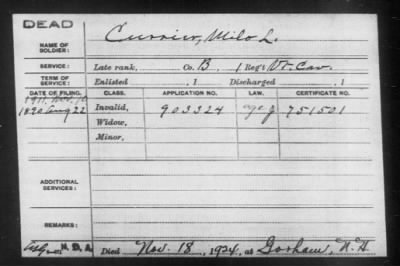 DEAD
NAME OF SOLDIER: Currier, Milo L.
SERVICE: Late rank, Co. B, 1 Reg't Vt. Cav.
TERM OF SERVICE: Enlisted , 1 Discharged , 1
DATE OF FILING. CLASS. APPLICATION NO. LAW. CERTIFICATE NO.
1911. Nov.
1890 Aug 22 Invalid, 903324 751501
Widow,
Minor,
ADDITIONAL SERVICES:
REMARKS:
Died Nov. 18, 1924, at Gorham, N.H.